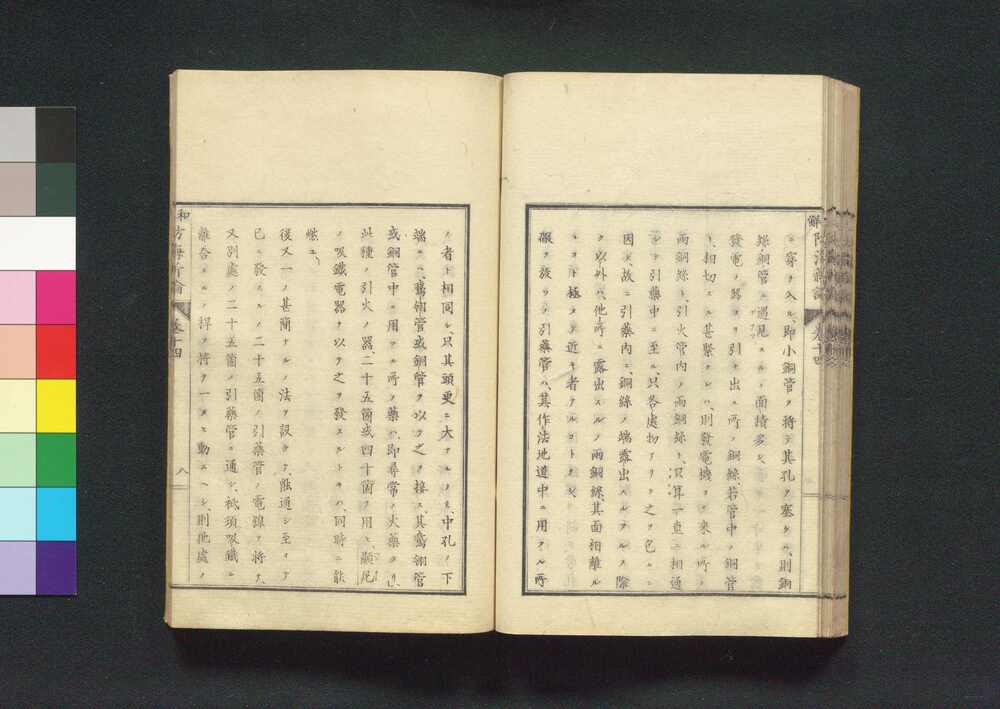 ニ穿ツ入ル、即小銅管ヲ將テ其孔ヲ塞ケハ、則銅
線銅管ニ遇見スルノ面積多シ
發電ノ器ヨリ引キ出ス所ノ銅絲若管中ノ銅管
ト相切スル甚緊ケレハ、則發電機ヨリ來ル所ノ
兩銅絲ト、引火管内ノ兩銅線ト、只算一直ニ相通
シ引藥中ニ至ル、只各處物アリテ之ヲ包ムニ
因ル、故ニ引藥内ニ、銅絲ノ端露出スルヲ除
ク以外ハ、他所ニ露出スルノ兩銅線、其面相離ル
コト極メテ近キ者アルコトナシ
礟ヲ放ツノ引藥管ハ、其作法地道中ニ用フル所
ノ者ト相同シ、只其頭更ニ大ナルノミ、中孔ノ下
端ニハ、鵞翎管或銅管ヲ以テ之ヲ接ス、其鵞翎管
或銅管中ニ用フル所ノ藥ハ、即尋常ノ火藥ナリ、
此種ノ引火ノ器二十五箇或四十箇ヲ用ヒ、顯尼
ノ吸鐵電器ヲ以テ之ヲ發スルトキハ、同時ニ能
燃ユ、
後又一ノ甚簡ナルノ法ヲ設ケテ、融通シ至ッテ
已ニ發スルノ二十五箇ノ引藥管ノ電線ヲ將テ、
又別處ノ二十五箇ノ引藥管ニ通シ、祗須吸鐵ニ
離合スルノ桿ヲ將テ一タヒ動スヘシ、則他處ノ
解防海新論 卷十四
和方海新論 卷十四
八